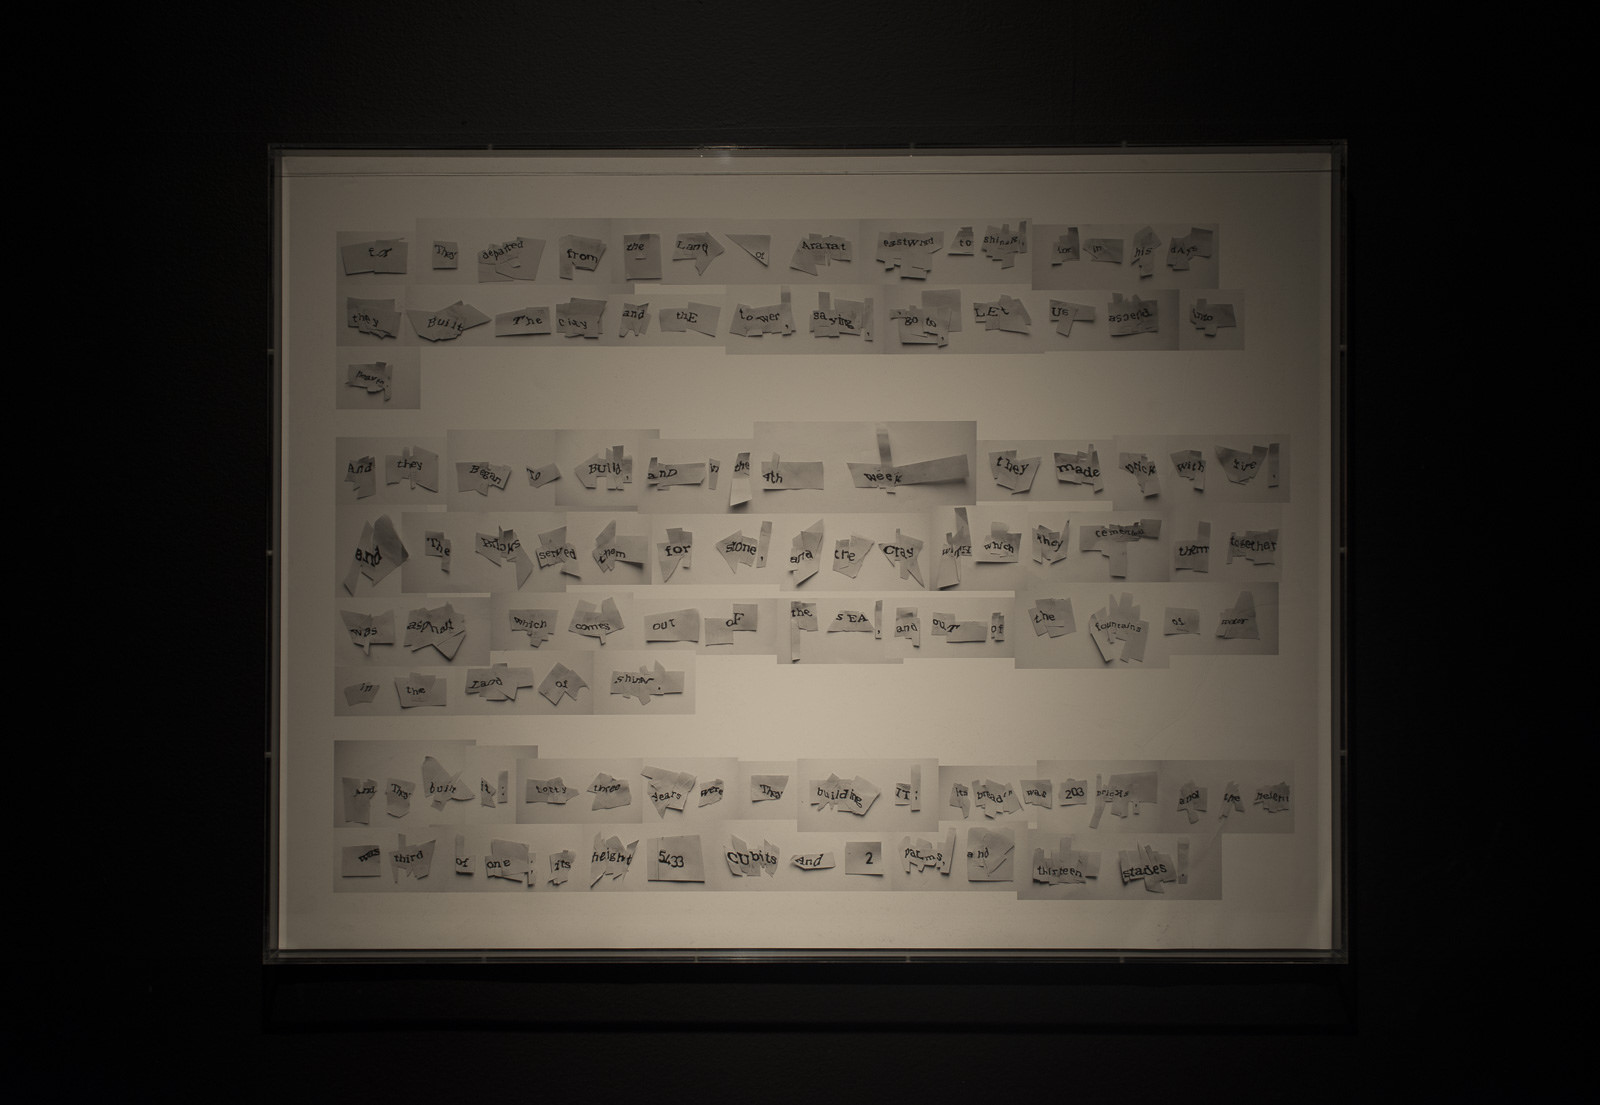 They departed from the Land of Ararat eastward to shinar, in his dAys
they Built The clay and thE tower, saying, go to, LEt Us ascend into
And they Began to BUIld, anD in the 4th week they made brick with fire,
and The served them for stone, and the Clay with which they them together
was asphalt which comes out oF the sEA, and ouT of the fountains of water
in the Land of shinar.
And They built it: forty three years were They building IT: its breadth was 203 bricks, and the height
was third of one; its height 5433 CUbits And 2 palms, and thirteen stades.